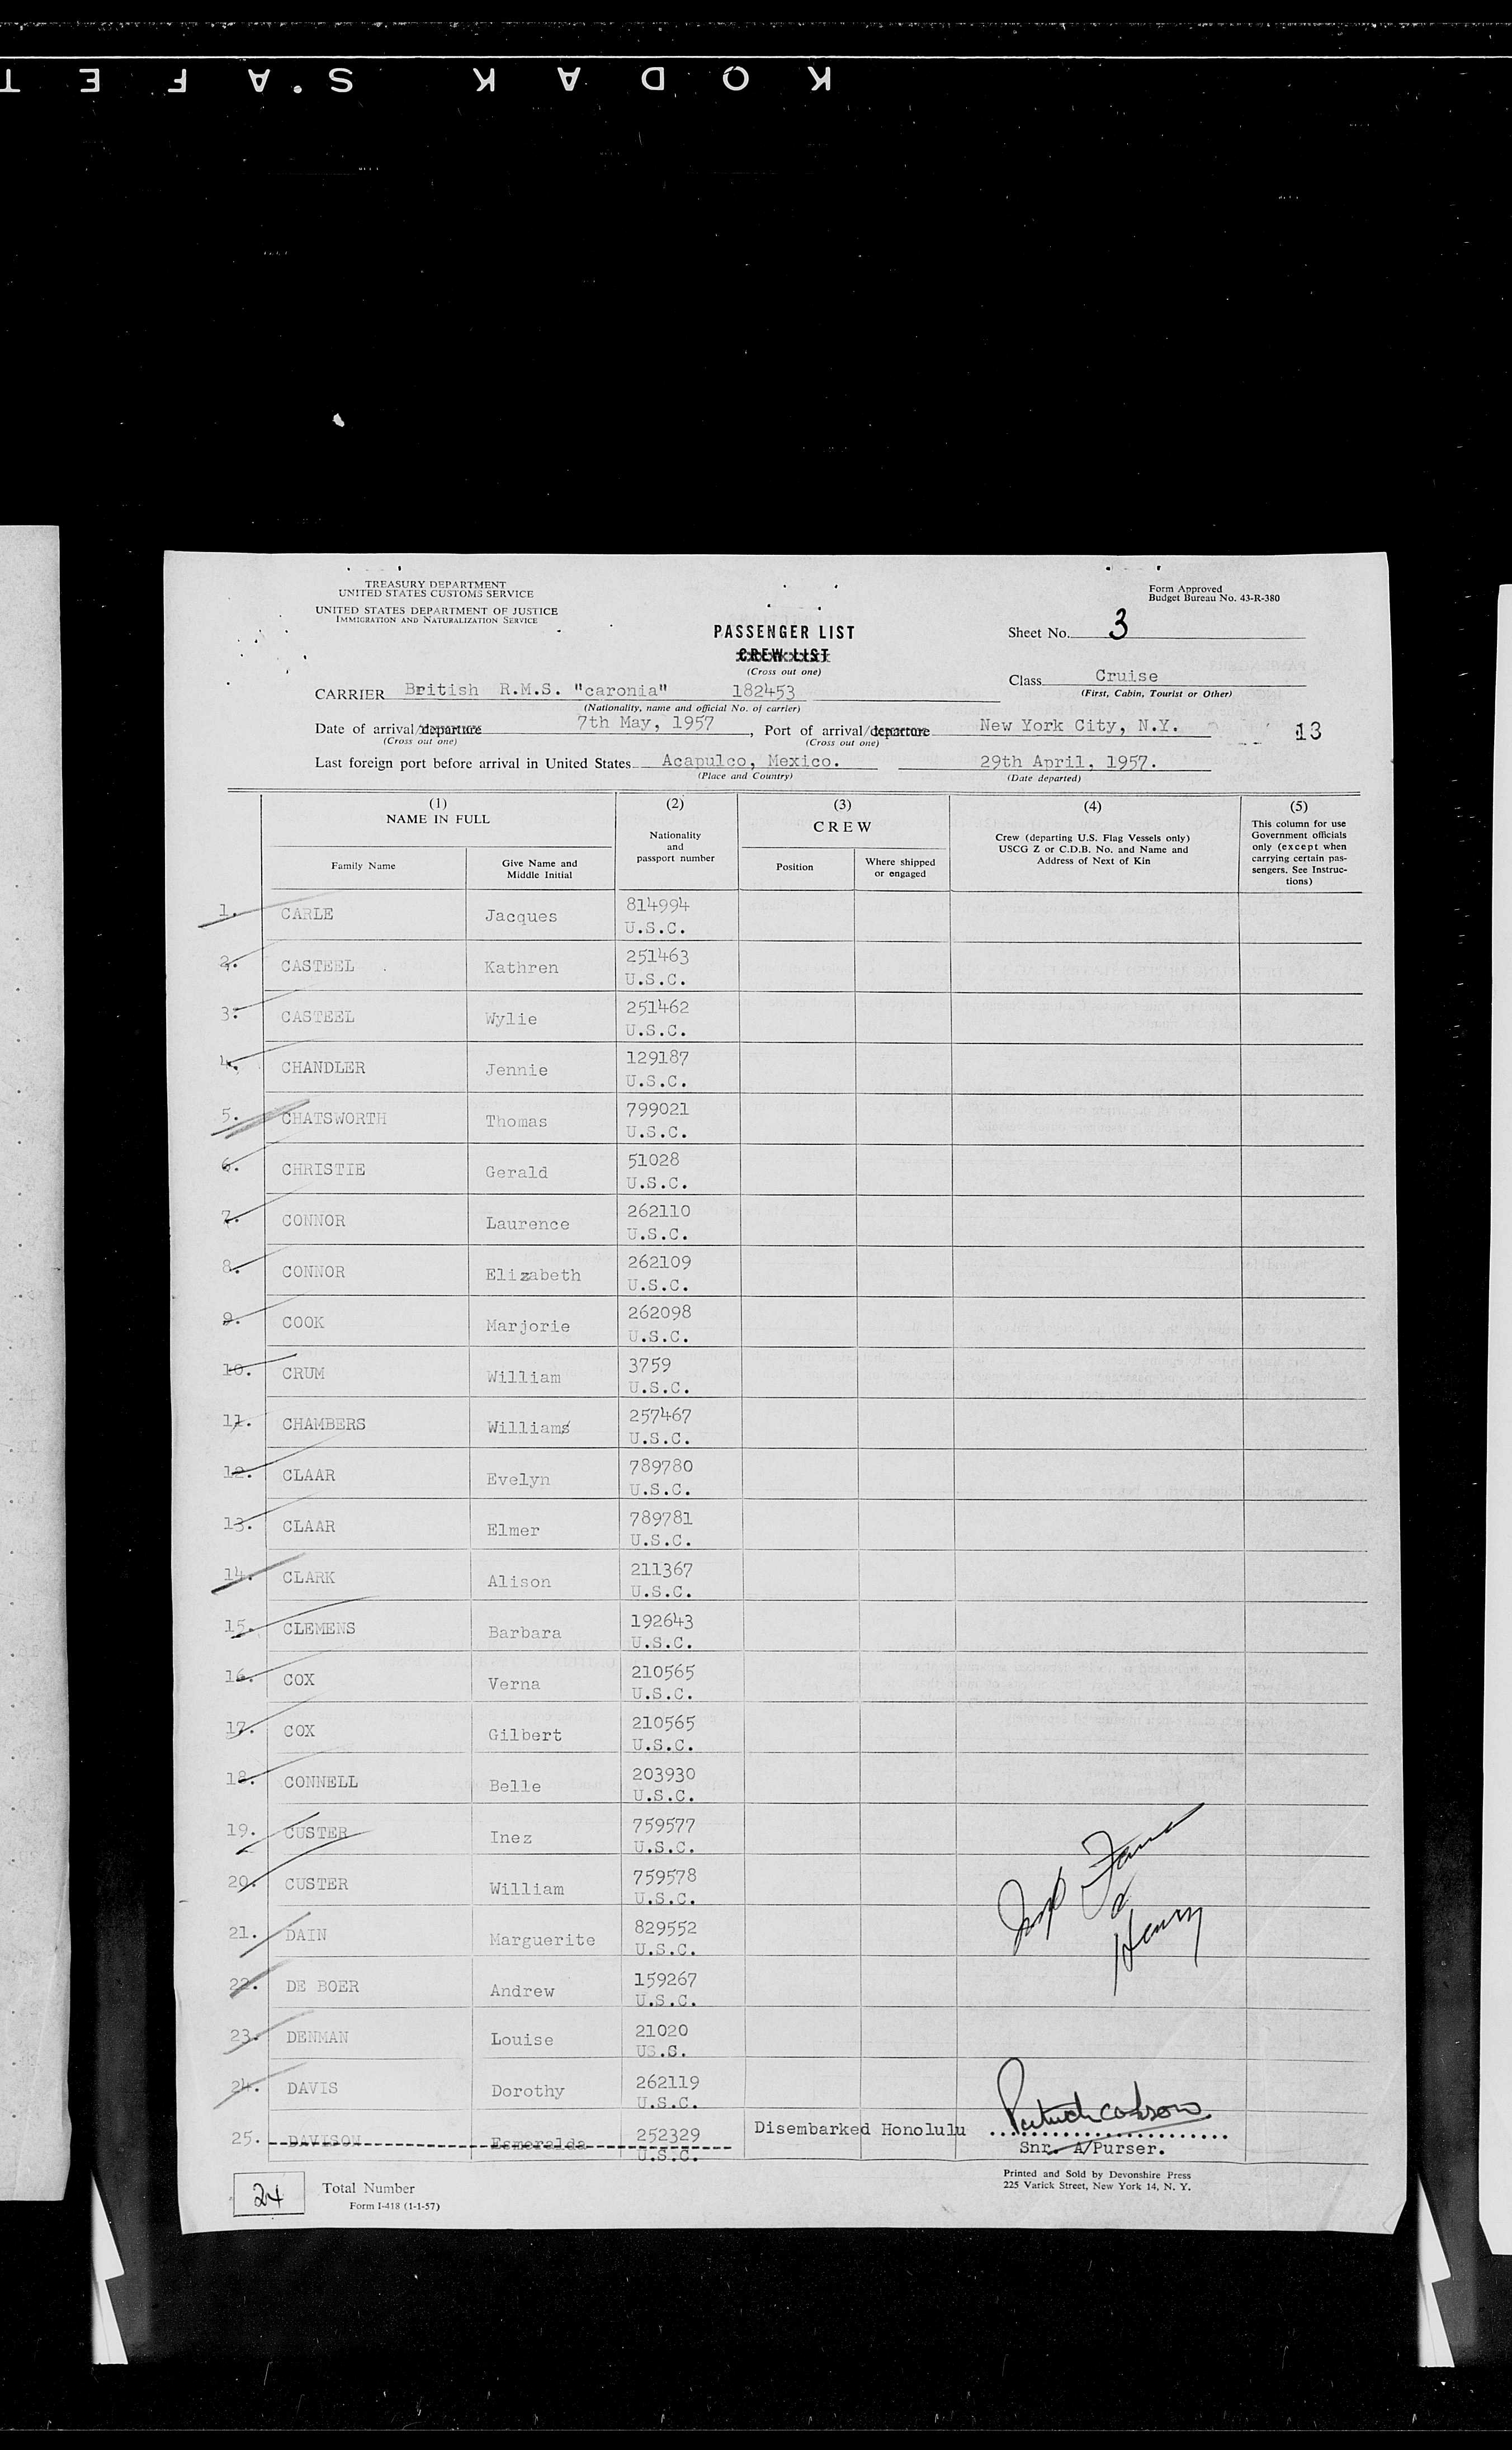 KODAK SAFET
TREASURY DEPARTMENT
UNITED STATES CUSTOMS SERVICE
UNITED STATES DEPARTMENT OF JUSTICE
IMMIGRATION AND NATURALIZATION SERVICE
Form Approved
Budget Bureau No. 43-R-380
PASSENGER LIST
CREW LIST
(Cross out one)
Sheet No. 3
Class Cruise
(First, Cabin, Tourist or Other)
CARRIER British R.M.S. "caronia" 182453
(Nationality, name and official No. of carrier)
Date of arrival/departure 7th May, 1957, Port of arrival/departure New York City, N.Y. 13
(Cross out one) (Cross out one)
Last foreign port before arrival in United States Acapulco, Mexico. 29th April, 1957.
(Place and Country) (Date departed)
(1) (2) (3) (4) (5)
NAME IN FULL
Family Name
Give Name and Middle Initial
Nationality and passport number
CREW
Position
Where shipped or engaged
Crew (departing U.S. Flag Vessels only)
USCG Z or C.D.B. No. and Name and
Address of Next of Kin
This column for use
Government officials
only (except when
carrying certain pas-
sengers. See Instruc-
tions)
1. CARLE Jacques 814994
U.S.C.
2. CASTEEL Kathren 251463
U.S.C.
3. CASTEEL Wylie 251462
U.S.C.
4. CHANDLER Jennie 129187
U.S.C.
5. CHATSWORTH Thomas 799021
U.S.C.
6. CHRISTIE Gerald 51028
U.S.C.
7. CONNOR Laurence 262110
U.S.C.
8. CONNOR Elizabeth 262109
U.S.C.
9. COOK Marjorie 262098
U.S.C.
10. CRUM William 3759
U.S.C.
11. CHAMBERS Williams 257467
U.S.C.
12. CLAAR Evelyn 789780
U.S.C.
13. CLAAR Elmer 789781
U.S.C.
14. CLARK Alison 211367
U.S.C.
15. CLEMENS Barbara 192643
U.S.C.
16. COX Verna 210565
U.S.C.
17. COX Gilbert 210565
U.S.C.
18. CONNELL Belle 203930
U.S.C.
19. CUSTER Inez 759577
U.S.C.
20. CUSTER William 759578
U.S.C.
21. DAIN Marguerite 829552
U.S.C.
22. DE BOER Andrew 159267
U.S.C.
23. DENMAN Louise 21020
US.S.
24. DAVIS Dorothy 262119
U.S.C.
25. DAVISON Esmeralda 252329 Disembarked Honolulu
U.S.C.
Henry
Snr. A/Purser.
24 Total Number
Form I-418 (1-1-57)
Printed and Sold by Devonshire Press
225 Varick Street, New York 14, N. Y.